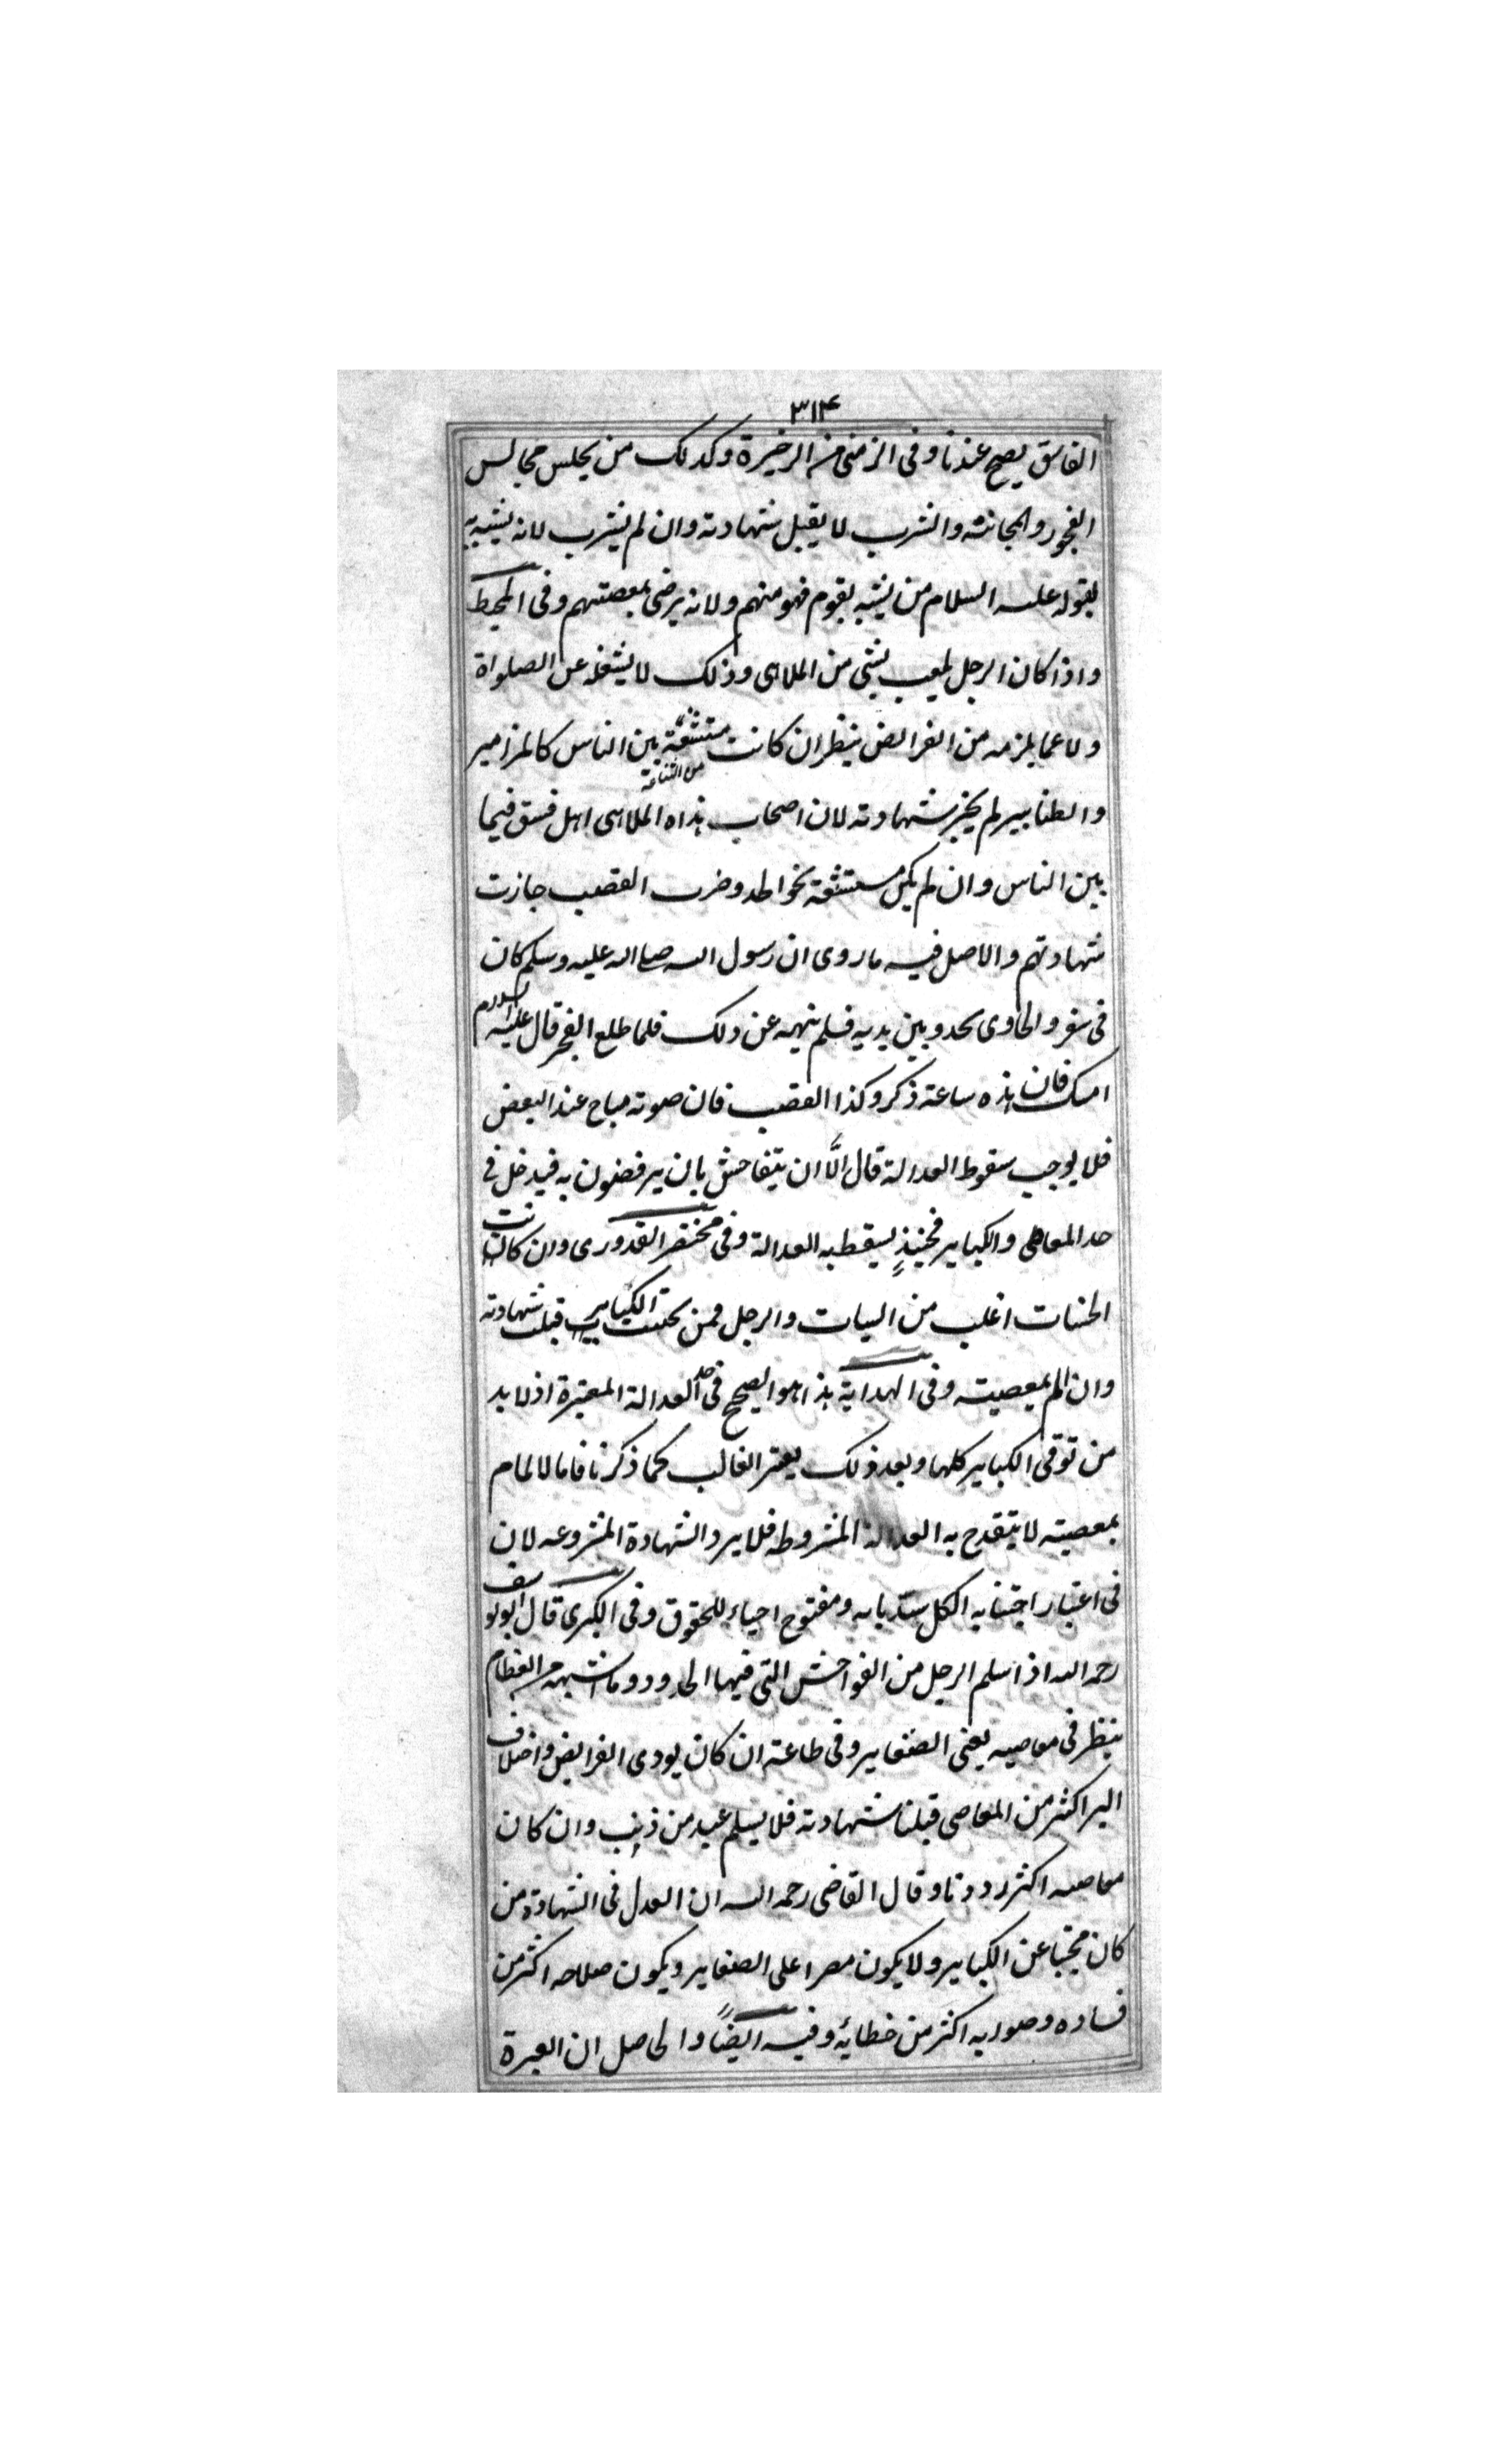 ٣١۴
الفاسق يصح عندنا وفى الزمنى من الرخيرة وكدلك من يجلس مجالس
الفجور والمجانة والشرب لا يقبل شهادته وان لم يشرب لانه يشبه به
لقوله عليه السلام من يشبه بقوم فهو منهم ولانه يرضى بمعصيتهم وفى المحيط
واذا كان الرجل يلعب بشئ من الملاهى وذلك لا يشغله عن الصلواة
ولا عما يلزمه من الفرائض ينظر ان كانت مستشنعة بين الناس كالمزامير
من الشناعة
والطنابير لم يجز شهادته لان اصحاب هذاه الملاهى اهل فسق فيما
بين الناس وان لم يكن مستشنعة نحو الحدو وضرب القصب جازت
شهادتهم والاصل فيه ما روى ان رسول الله صلى الله عليه وسلم كان
فى سفر والحاوى يحدو بين يديه فلم ينهيه عن دلك فلما طلع الفجر قال عليه السلام
امسك فان هذه ساعة ذكر وكذا القضب فان صوته مباح عند البعض
فلا يوجب سقوط العدالة قال الَّا ان يتفاحش بان يرفضون به فيدخل فى
حد المعاصى والكباير فحينئذٍ يسقط به العدالة وفى مختصر القدورى وان كانت
الحسنات اغلب من السيات والرجل فمن يجتنب الكباير قبلت شهادته
وان الم بمعصيت وفى الهداية هذا هو الصحيح فى حد العدالة المعتبرة اذ لا بد
من توقى الكباير كلها وبعد ذلك يعتبر الغالب كما ذكرنا فاما لالمام
بمعصيته لا يتقدح به العدالة المشروطه فلا يرد الشهادة المشروعه لان
فى اعتبار اجتنابه الكل سدّ بابه ومفتوح احياء للحقوق وفى الكبرى قال ابو يوسف
رحمه الله اذا سلم الرجل من الفواحش التى فيها الحدود وما اشبهه من العظام
ينظر فى معاصيه يعنى الصغاير وفى طاعته ان كان يودى الفرايض واخلاف
البر اكثر من المعاصى قبلنا شهادته فلا يسلم عبد من ذنب وان كان
معاصيه اكثر رددنا وقال القاضى رحمه الله ان العدل فى الشهادة من
كان مجتنبا عن الكباير ولا يكون مصرا على الصغاير ويكون صلاحه اكثر من
فساده وصوابه اكثر من خطائه وفيه ايضًا والحاصل ان العبرة